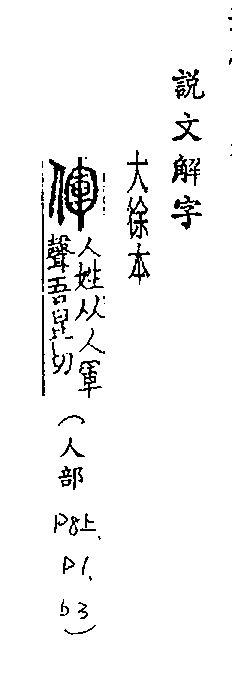 說文解字
大徐本
人姓从人軍
聲吾昆切
(人部
P8上、
P1、
b3)